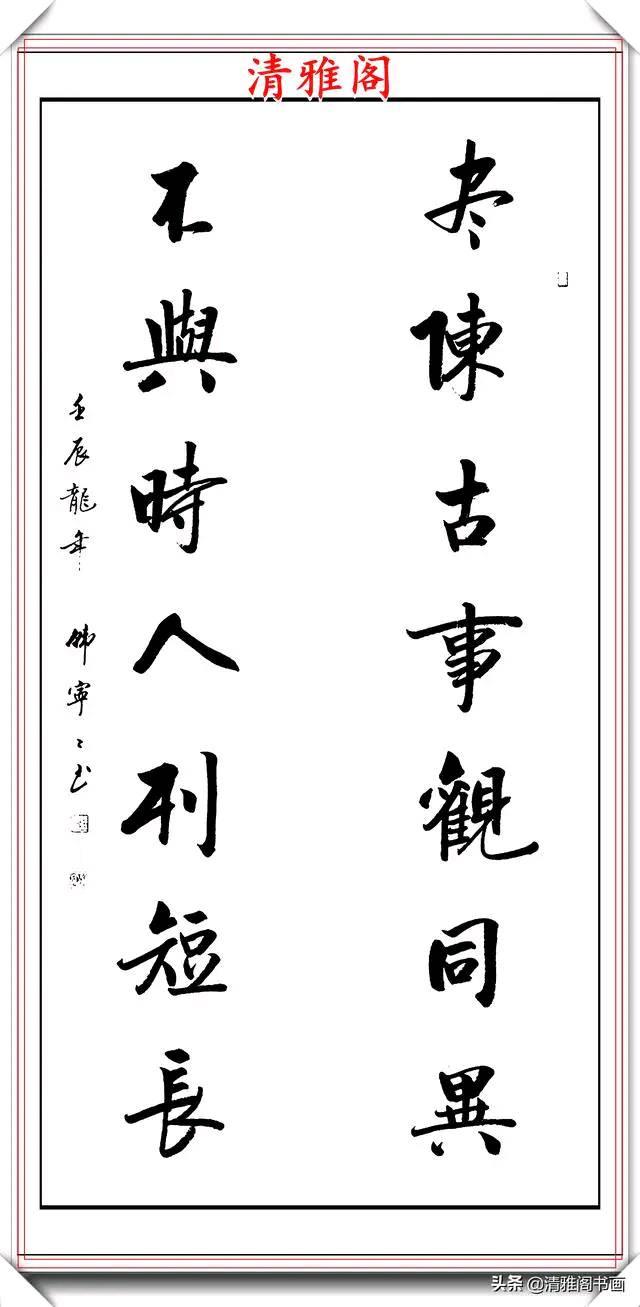 清雅阁
尽陳古事觀同異
不與時人刊短長
壬辰龍年 韩寧寧书
头条 @清雅阁书画